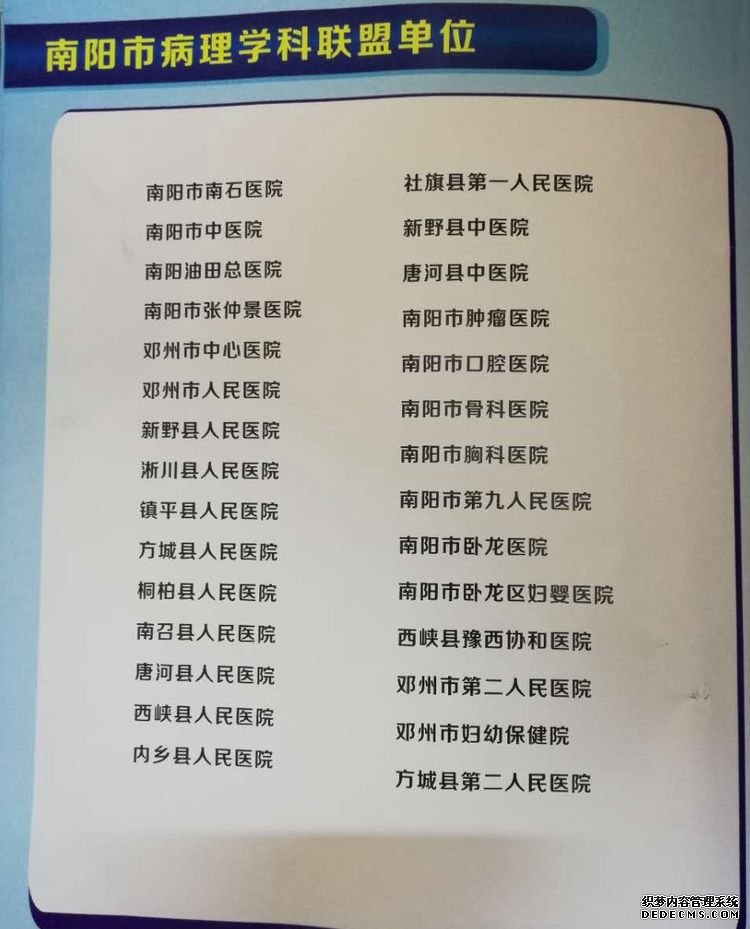 南阳市病理学科联盟单位
南阳市南石医院
南阳市中医院
南阳油田总医院
南阳市张仲景医院
邓州市中心医院
邓州市人民医院
新野县人民医院
淅川县人民医院
镇平县人民医院
方城县人民医院
桐柏县人民医院
南召县人民医院
唐河县人民医院
西峡县人民医院
内乡县人民医院
社旗县第一人民医院
新野县中医院
唐河县中医院
南阳市肿瘤医院
南阳市口腔医院
南阳市骨科医院
南阳市胸科医院
南阳市第九人民医院
南阳市卧龙医院
南阳市卧龙区妇婴医院
西峡县豫西协和医院
邓州市第二人民医院
邓州市妇幼保健院
方城县第二人民医院
织梦内容管理系统
DEDECMS.COM